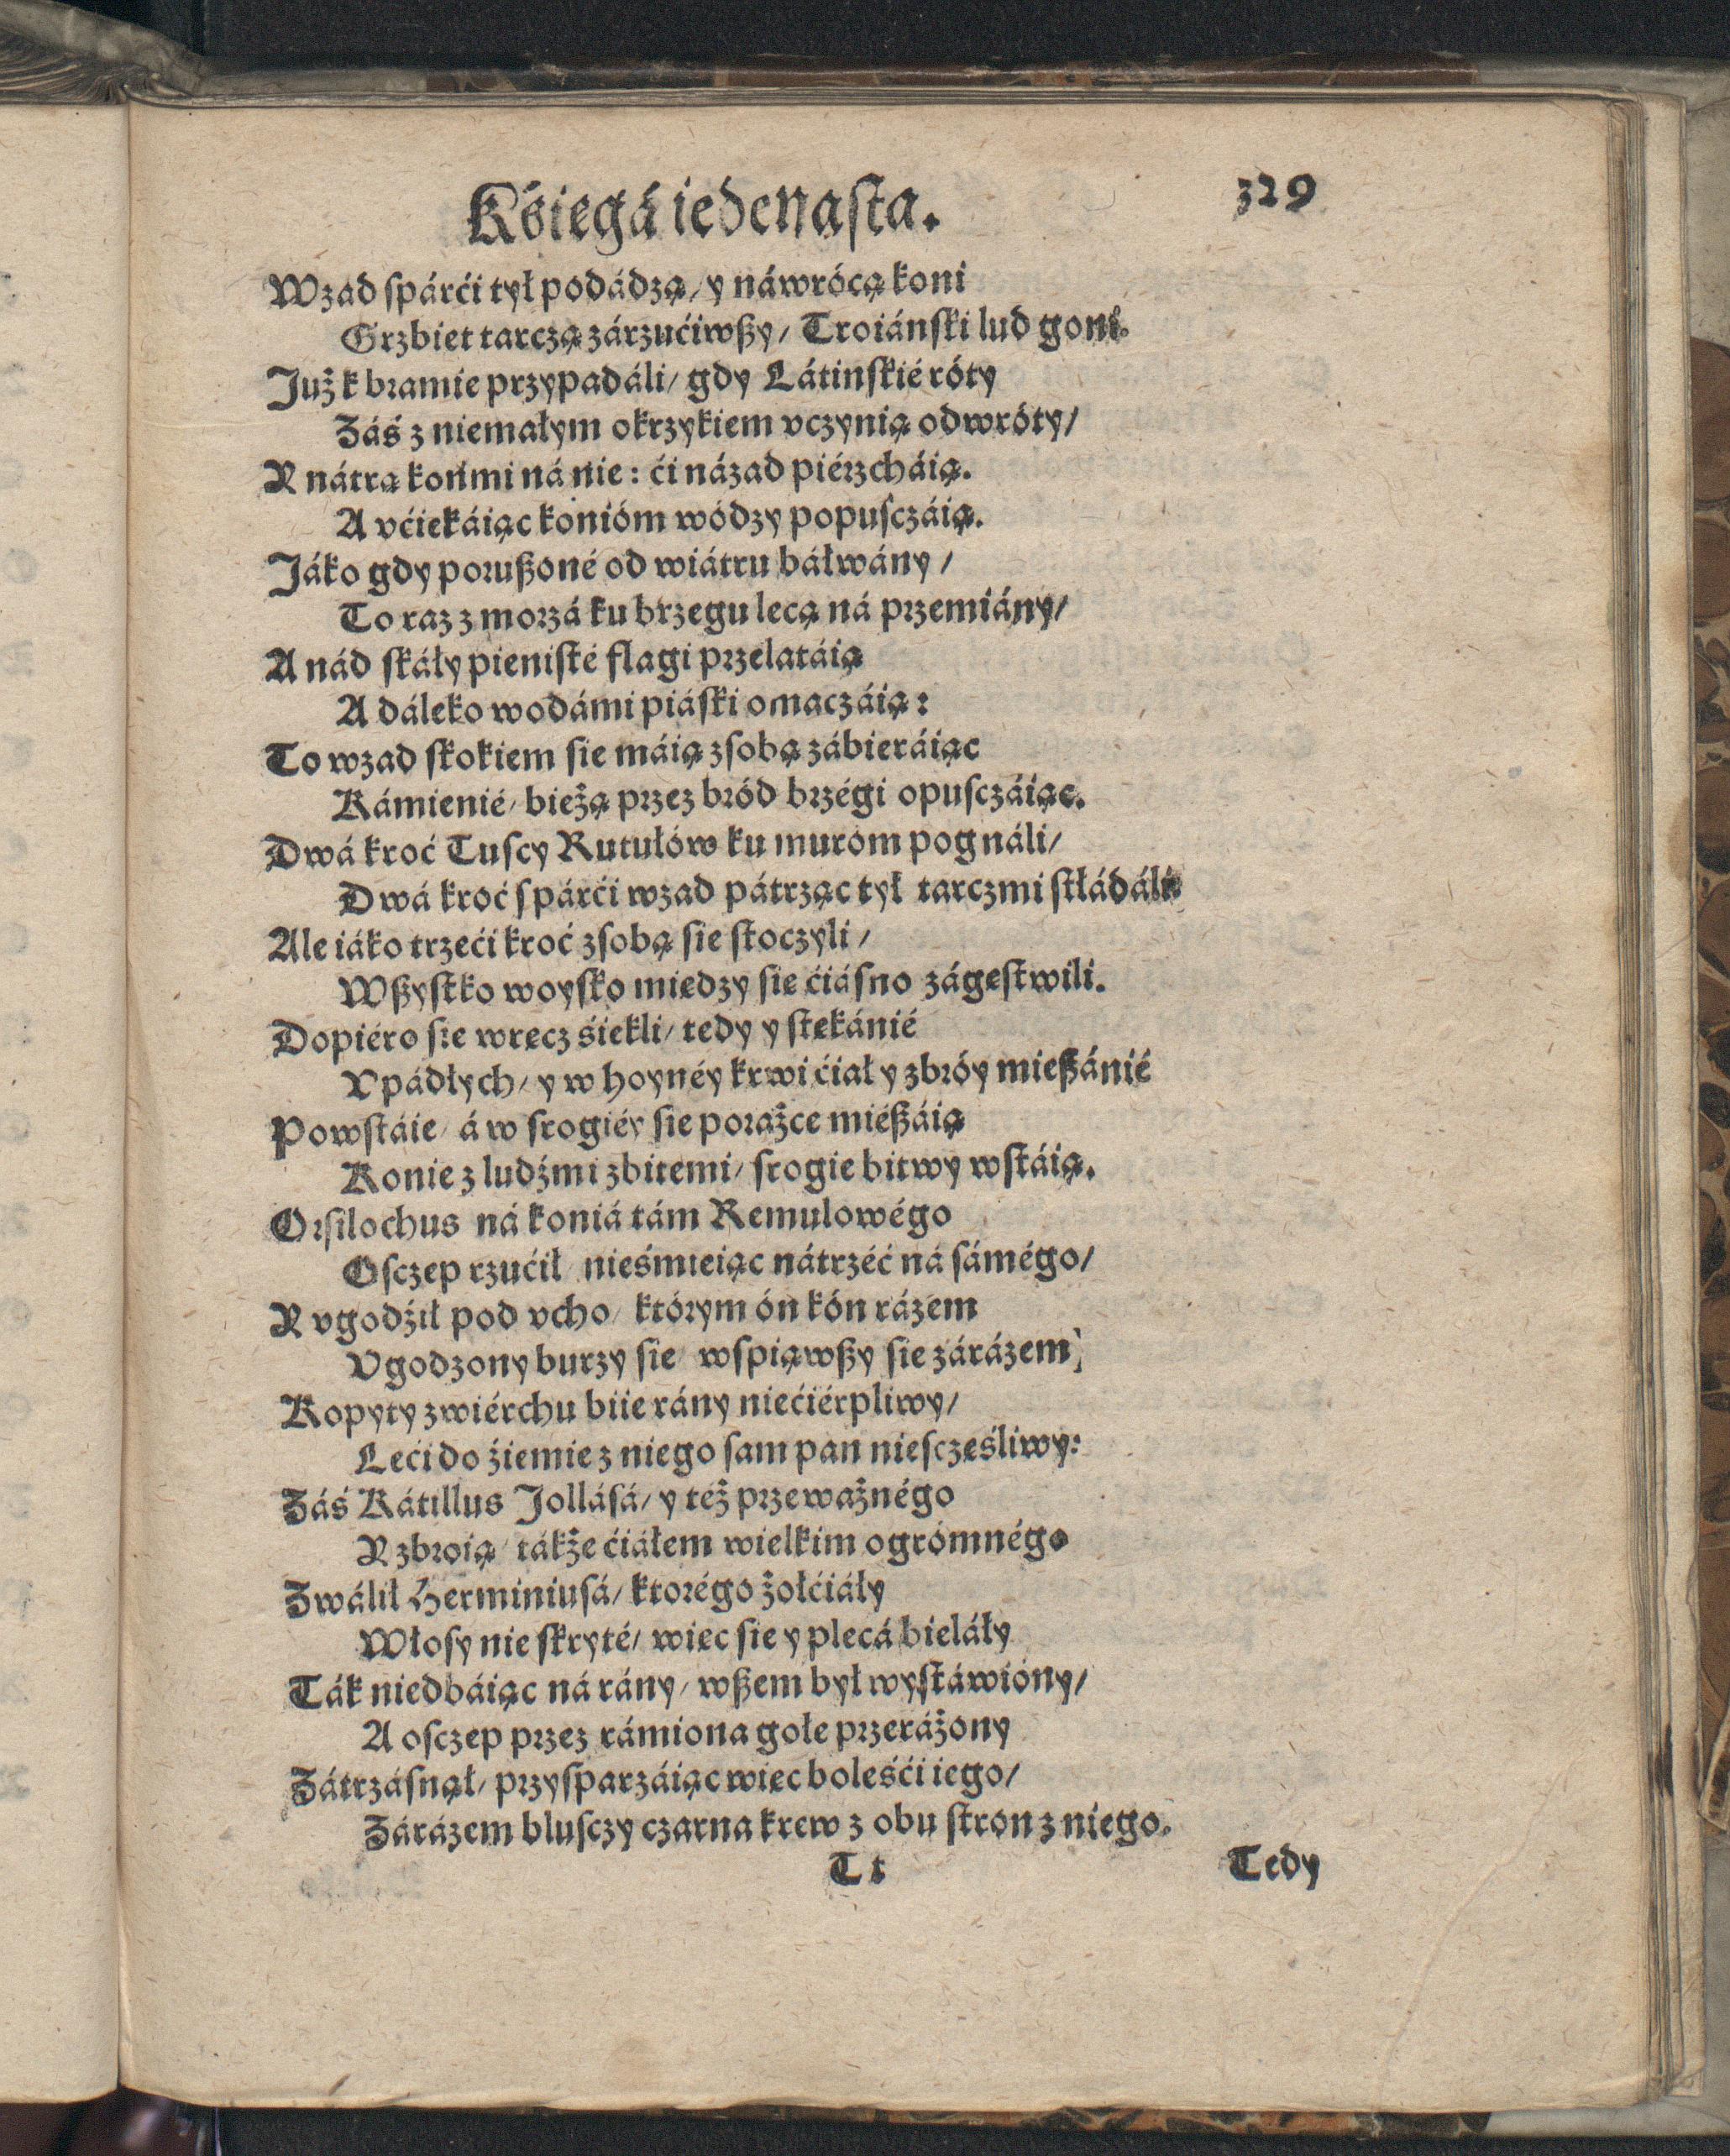 Kśięgá iedenasta.
329
Wzad spárći tył podádzą/ y náwrócą koni
Grzbiet tarczą zárzućiwszy/ Troiánski lud goni.
Już k bramie przypadáli/ gdy Látinskié róty
Záś z niemałym okrzykiem vczynią odwróty/
Y nátrą końmi ná nie: ći názad piérzcháią.
A vćiekáiąc konióm wódzy popusczáią.
Jáko gdy poruszoné od wiátru báłwány/
To raz z morzá ku brzegu lecą ná przemiány/
A nád skáły pienisté flagi przelatáią
A dáleko wodámi piáski omaczáią:
To wzad skokiem sie máią zsobą zábieráiąc
Kámienié/ bieżą przez bród brzégi opusczáiąc.
Dwá kroć Tuscy Rutułów ku muróm pognáli/
Dwá kroć spárći wzad pátrząc tył tarczmi skłádáli.
Ale iáko trzeći kroć zsobą sie stoczyli/
Wszystko woysko miedzy sie ćiásno zágęstwili.
Dopiéro sie wręcz śiekli/ tedy y stękánié
Vpádłych/ y w hoynéy krwi ćiał y zbróy mieszánié
Powstáie/ á w srogiéy sie porażce miészáią
Konie z ludźmi zbitemi/ srogie bitwy wstáią.
Orsilochus ná koniá tám Remulowégo
Osczep rzućił/ nieśmieiąc nátrzéć ná sámégo/
Y vgodźił pod vcho/ którym ón kón rázem
Vgodzony burzy sie/ wspiąwszy sie zárázem)
Kopyty zwiérchu biie rány niećiérpliwy/
Leći do źiemie z niego sam pan niesczęśliwy:
Záś Kátillus Jollásá/ y też przeważnégo
Y zbroią/ tákże ćiáłem wielkim ogrómnégo
Zwálił Herminiusá/ ktorégo żołćiáły
Włosy nie skryté/ wiec sie y plecá bieláły
Ták niedbáiąc ná rány/ wszem był wystáwióny/
A osczep przez rámiona gołe przeráżony
Zátrzásnął/ przysparzáiąc więc boleśći iego/
Zárázem blusczy czarna krew z obu stron z niego.
Tt
Tedy